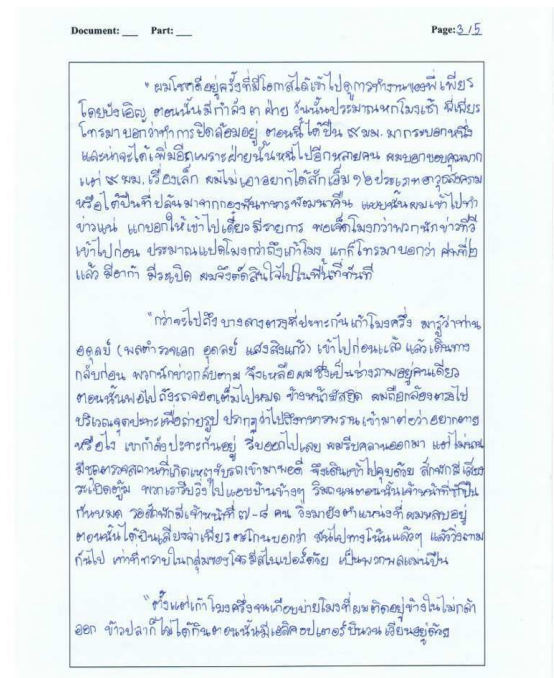 Document: ___ Part: ___ Page: 3/5
"ผมโชคดีอยู่ครั้งที่มีโอกาสได้เข้าไปดูการทำงานของพี่เพียร
โดยบังเอิญ ตอนนั้นมีกำลัง ๓ ฝ่าย วันนั้นประมาณหกโมงเช้า พี่เพียร
โทรมาบอกว่าทำการปิดล้อมอยู่ ตอนนี้ได้ปืน ๙ มม. มากระบอกหนึ่ง
และน่าจะได้เพิ่มอีกเพราะฝ่ายนั้นหนีไปอีกหลายคน ผมบอกขอบคุณมาก
แต่ ๙ มม. เรื่องเล็ก ผมไม่เอาอยากได้สักเอ็ม ๑๖ ประเภทอาวุธสงคราม
หรือได้ปืนที่ปล้นมาจากกองพันทหารพัฒนาคืน แบบนั้นผมเข้าไปทำ
ข่าวแน่ แกบอกให้เข้าไปเดี๋ยวมีรายการ พอเจ็ดโมงกว่าพวกนักข่าวทีวี
เข้าไปก่อน ประมาณแปดโมงกว่าถึงเก้าโมง แกก็โทรมาบอกว่า ศพที่ ๒
แล้ว มีอาก้า มีระเบิด ผมจึงตัดสินใจไปในพื้นที่ทันที
"กว่าจะไปถึงบางลางตรงที่ปะทะกันเก้าโมงครึ่ง มารู้ว่าท่าน
อดุลย์ (พลตำรวจเอก อดุลย์ แสงสิงแก้ว) เข้าไปก่อนแล้ว แล้วเดินทาง
กลับก่อน พวกนักข่าวกลับตาม จึงเหลือผมซึ่งเป็นช่างภาพอยู่คนเดียว
ตอนนั้นพอไปถึงรถจอดเต็มไปหมด ข้างหน้ามัสยิด ผมถือกล้องตรงไป
บริเวณจุดปะทะเพื่อถ่ายรูป ปรากฏว่าไปถึงทหารพรานเข้ามาต่อว่าอยากตาย
หรือไง เขากำลังปะทะกันอยู่ รีบออกไปเลย ผมรีบคลานออกมา แต่ไม่นาน
มีชุดตรวจสถานที่เกิดเหตุขับรถเข้ามาพอดี จึงเดินเข้าไปคุยด้วย สักพักมีเสียง
ระเบิดตู้ม พวกเรารีบวิ่งไปแอบบ้านข้างๆ ริมถนนตอนนั้นเจ้าหน้าที่ชักปืน
กันหมด รอสักพักมีเจ้าหน้าที่ ๗-๘ คน วิ่งมายังตำแหน่งที่ผมหลบอยู่
ตอนนั้นได้ยินเสียงจ่าเพียรตะโกนบอกว่า มันไปทางโน้นแล้วๆ แล้ววิ่งตาม
กันไป เท่าที่ทราบในกลุ่มของโจรมีสไนเปอร์ด้วย เป็นพวกพลแม่นปืน
"ตั้งแต่เก้าโมงครึ่งจนเกือบบ่ายโมงที่ผมติดอยู่ข้างในไม่กล้า
ออก ข้าวปลาก็ไม่ได้กินตอนนั้นมีเฮลิคอปเตอร์บินวนเวียนอยู่ด้วย